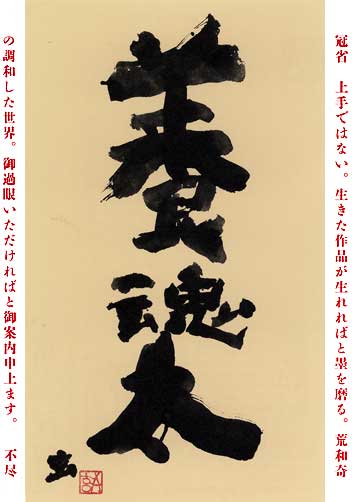 冠省　上手ではない。生きた作品が生れればと墨を磨る。荒和奇
の調和した世界。御過眼いただければと御案内申上ます。　不尽
養魂太
玄